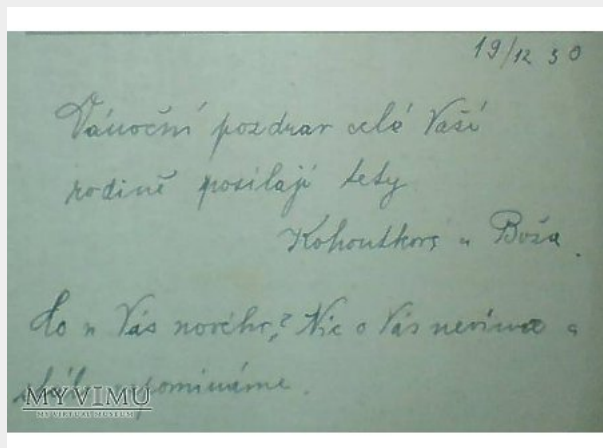 19/12 30
Vánoční pozdrav celé Vaší
rodině posílají tety
Kohoutkovi a Boža.
Co u Vás nového? Nic o Vás nevíme a
vzpomínáme.
MYVIMU
MY VIRTUAL MUSEUM